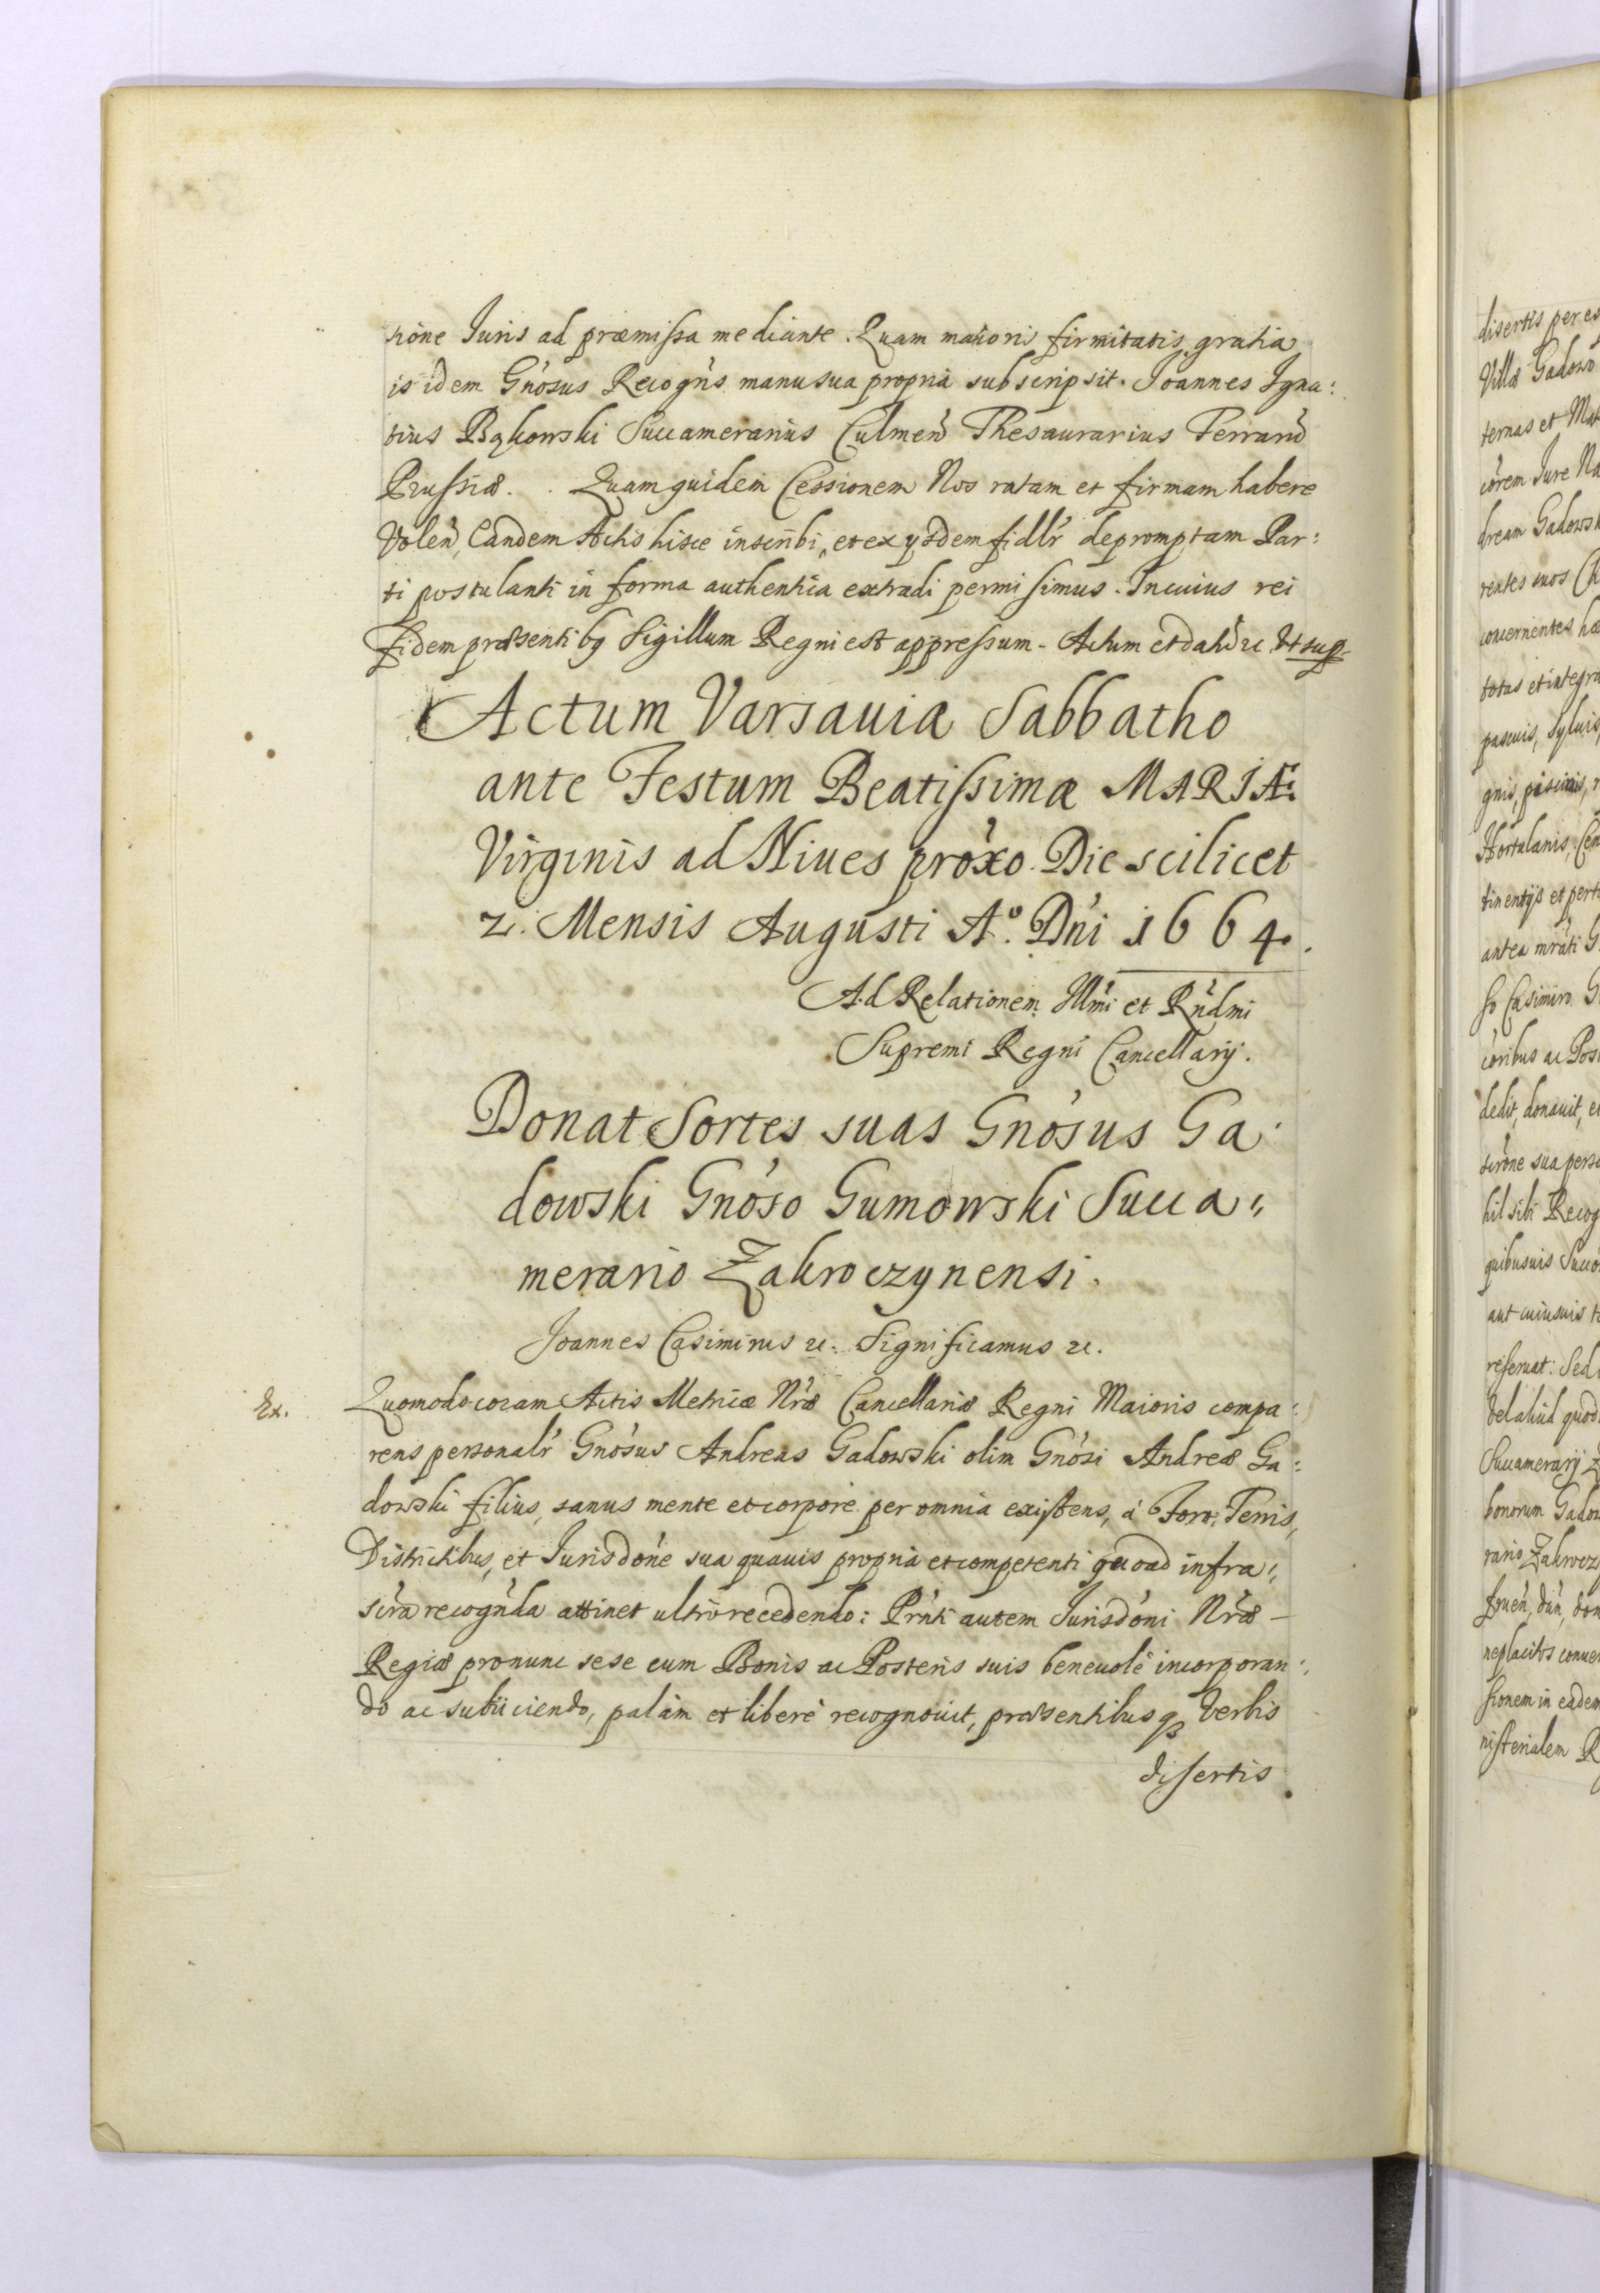 tione Iuris ad præmissa mediante. Quam maioris firmitatis gratia
is idem Gnosus Recogns manu sua propria subscripsit. Joannes Igna:
tius Bąkowski Succamerarius Culmen Thesaurarius Terrarū
Prussiæ. Quam quidem Cessionem Nos ratam et firmam habere
Volen, Eandem Actis hisce inscribi, et ex ijsdem fidlr depromptam Par:
ti postulanti in forma authentica extradi permisimus. In cuius rei
fidem præsentibq Sigillum Regni est appressum. Actum et datū &c Ut sup.
Actum Varsauiæ Sabbatho
ante Festum Beatissimæ MARIÆ
Virginis ad Niues proxo. Die scilicet
2. Mensis Augusti Aº. Dni 1664.
Ad Relationem Illmi et Rndmi
Supremi Regni Cancellarij.
Donat Sortes suas Gnosus Ga:
dowski Gnoso Gumowski Succa:
merario Zakroczynensi.
Joannes Casimirus &c. Significamus &c.
Ex. Quomodo coram Actis Metricæ Nræ Cancellariæ Regni Maioris compa:
rens personalr Gnosus Andreas Gadowski olim Gnosi Andreæ Ga:
dowski filius, sanus mente et corpore per omnia existens, à Foro, Terris,
Districtibus, et Iurisdone sua quauis propria et competenti quoad infra:
scra recognda attinet ultro recedendo: Prnti autem Iurisdoni Nræ
Regiæ pro nunc sese cum Bonis ac Posteris suis beneuolè incorporan:
do ac subijciendo, palàm et liberè recognouit, præsentibusq Verbis
disertis
disertis per
Villæ Gadowo
ternas et
corem Iure
dream
rentes suos
concernentes
totas et
pascuis, syluis,
gnis, piscinis,
Hortulanis,
tinentijs et
antea
so Casimiro
coribus ac
dedit, donauit,
sua
hil sibi
quibusuis
aut cuiusuis
reseruat. Sed
Vel aliud quod
Succamerarij
bonorum
rario
neplacitos
sionem in
nisterialem